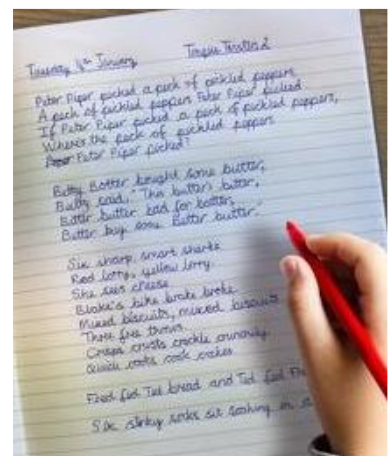 Tuesday 4th January Tongue Twisters 2
Peter Piper picked a peck of pickled peppers
A peck of pickled peppers Peter Piper picked
If Peter Piper picked a peck of pickled peppers,
Where's the peck of pickled peppers
Peter Piper picked?
Betty Botter bought some butter,
Betty said, "This butter's bitter,
Bitter butter bad for batter,
Better buy some better butter."
Six sharp smart sharks
Red lorry, yellow lorry.
She sees cheese
Blake's bike brake broke
Mixed biscuits, mixed biscuits
Three free throws
Crisps crusts crackle crunchily
Quick cooks cook cakes
Fred fed Ted bread and Ted fed Fr
Six stinky socks sit soaking in a